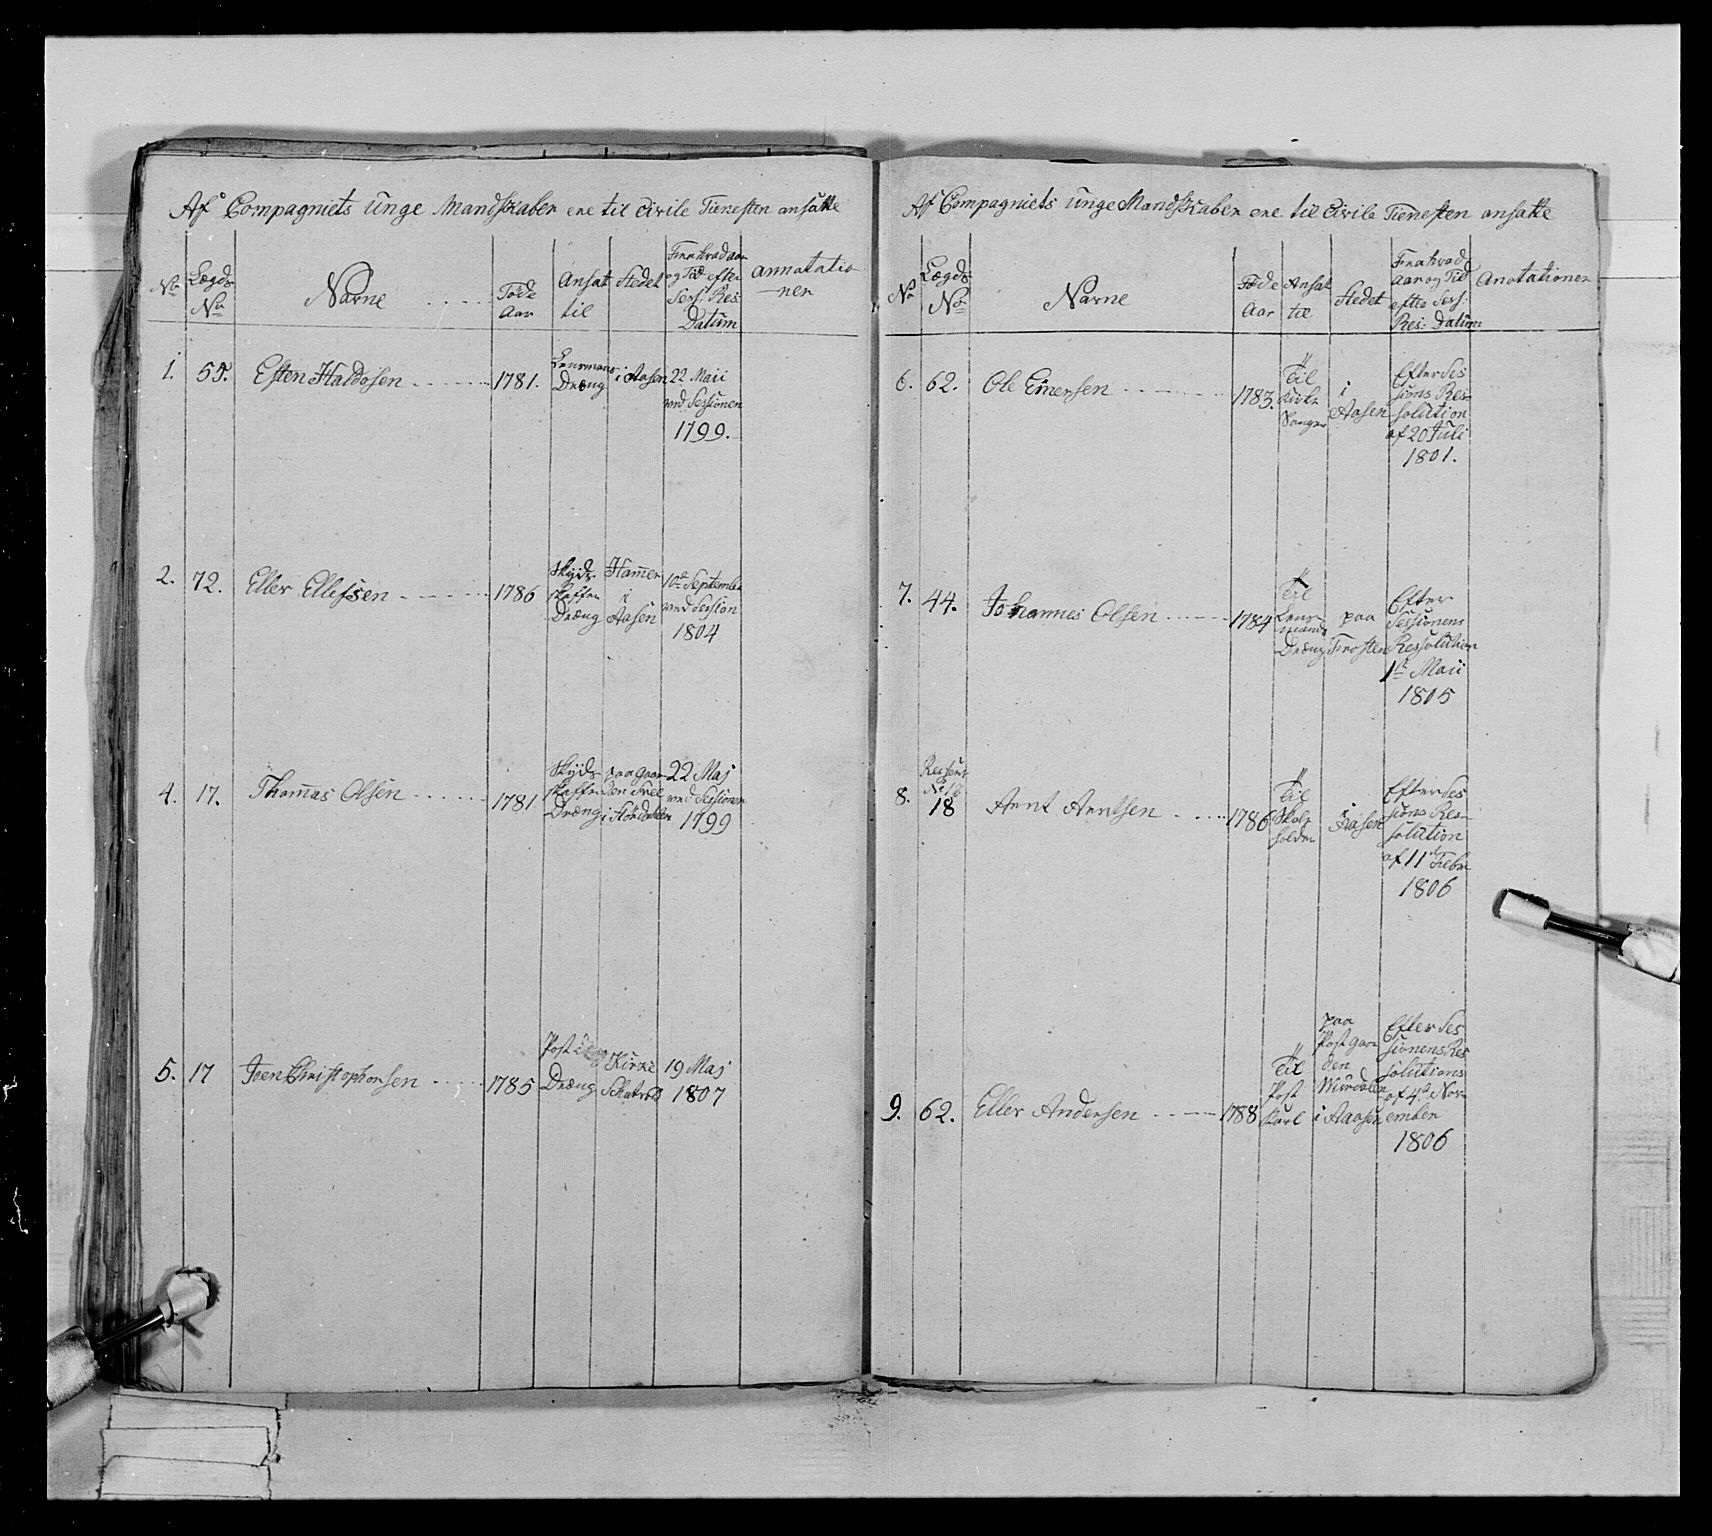 Af Compagniets unge Mandskaber ere til Civile Tienesten ansatte
No
Lægds No
Navne
Föde Aar
Ansat til
Stedet
Fra hvad aar og Tid efter Sess: Res: Datum
annotatio-
nen
1. 55. Esten Haldosen 1781. Lensmans Dreng i Aasen 22 Maii
ved Sessionen
1799.
2. 72. Eller Ellefsen 1786 Skyds skaffer Dræng Hammer i Aasen 10de September
ved Session
1804
4. 17. Thommas Olsen 1781 Skyds skaffer Dræng paa gaarden i Stördalen 22 Maj
ved Sessionen
1799
5. 17 Joen Christophersen 1785 Post Dræng Kirke 19 Maj
1807
Af Compagniets unge Mandskaber ere til Civile Tienesten ansatte
No
Lægds No
Navne
Föde Aar
Ansat til
Stedet
Fra hvad aar og Tid efter Sess: Res: Datum
Anotationer
6. 62. Ole Einersen 1783. Til Kirke Sanger i Aasen Efter Ses
sions Res-
solution
af 20 Juli
1801.
7. 44. Johannes Olsen 1784 Til Lens-mands Dræng paa Frosten Efter
Sessionens
Ressolution
1te Maii
1805
8. 18 Arnt Arntsen 1786 Til Skole holder i Aasen Efter Ses
sions Res-
solution
af 11te Febr
1806
9. 62. Eller Andersen 1788 Til Post Karl paa Postgaarden i Aaasen Efter Ses
sionens Res
solutions
af 4de Nov-
ember
1806